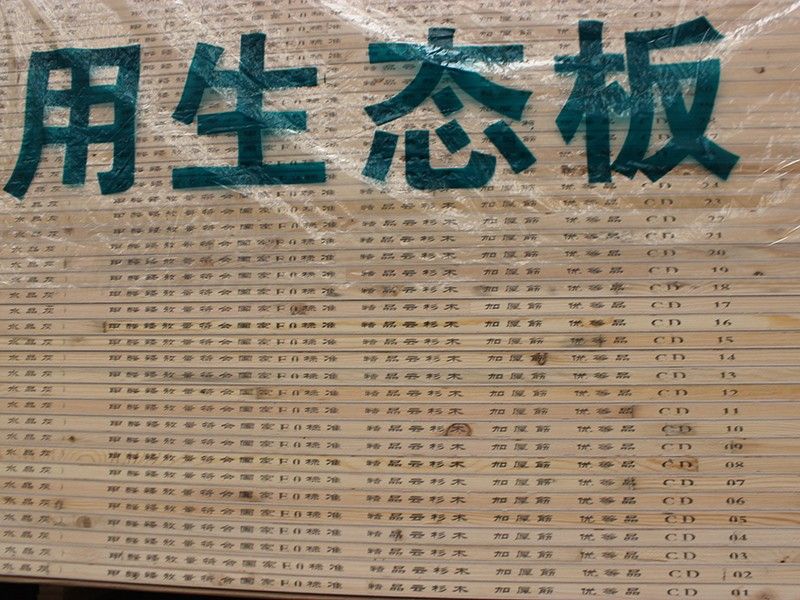 用生态板
优等品 CD 24
水晶灰 甲醛释放量符合国家E0标准 精品云杉木 加厚筋 优等品 CD 23
水晶灰 甲醛释放量符合国家E0标准 精品云杉木 加厚筋 优等品 CD 22
水晶灰 甲醛释放量符合国家E0标准 精品云杉木 加厚筋 优等品 CD 21
水晶灰 甲醛释放量符合国家E0标准 精品云杉木 加厚筋 优等品 CD 20
水晶灰 甲醛释放量符合国家E0标准 精品云杉木 加厚筋 优等品 CD 19
水晶灰 甲醛释放量符合国家E0标准 精品云杉木 加厚筋 优等品 CD 18
水晶灰 甲醛释放量符合国家E0标准 精品云杉木 加厚筋 优等品 CD 17
水晶灰 甲醛释放量符合国家E0标准 精品云杉木 加厚筋 优等品 CD 16
水晶灰 甲醛释放量符合国家E0标准 精品云杉木 加厚筋 优等品 CD 15
水晶灰 甲醛释放量符合国家E0标准 精品云杉木 加厚筋 优等品 CD 14
水晶灰 甲醛释放量符合国家E0标准 精品云杉木 加厚筋 优等品 CD 13
水晶灰 甲醛释放量符合国家E0标准 精品云杉木 加厚筋 优等品 CD 12
水晶灰 甲醛释放量符合国家E0标准 精品云杉木 加厚筋 优等品 CD 11
水晶灰 甲醛释放量符合国家E0标准 精品云杉木 加厚筋 优等品 CD 10
水晶灰 甲醛释放量符合国家E0标准 精品云杉木 加厚筋 优等品 CD 09
水晶灰 甲醛释放量符合国家E0标准 精品云杉木 加厚筋 优等品 CD 08
水晶灰 甲醛释放量符合国家E0标准 精品云杉木 加厚筋 优等品 CD 07
水晶灰 甲醛释放量符合国家E0标准 精品云杉木 加厚筋 优等品 CD 06
水晶灰 甲醛释放量符合国家E0标准 精品云杉木 加厚筋 优等品 CD 05
水晶灰 甲醛释放量符合国家E0标准 精品云杉木 加厚筋 优等品 CD 04
水晶灰 甲醛释放量符合国家E0标准 精品云杉木 加厚筋 优等品 CD 03
水晶灰 甲醛释放量符合国家E0标准 精品云杉木 加厚筋 优等品 CD 02
精品云杉木 加厚筋 优等品 CD 01